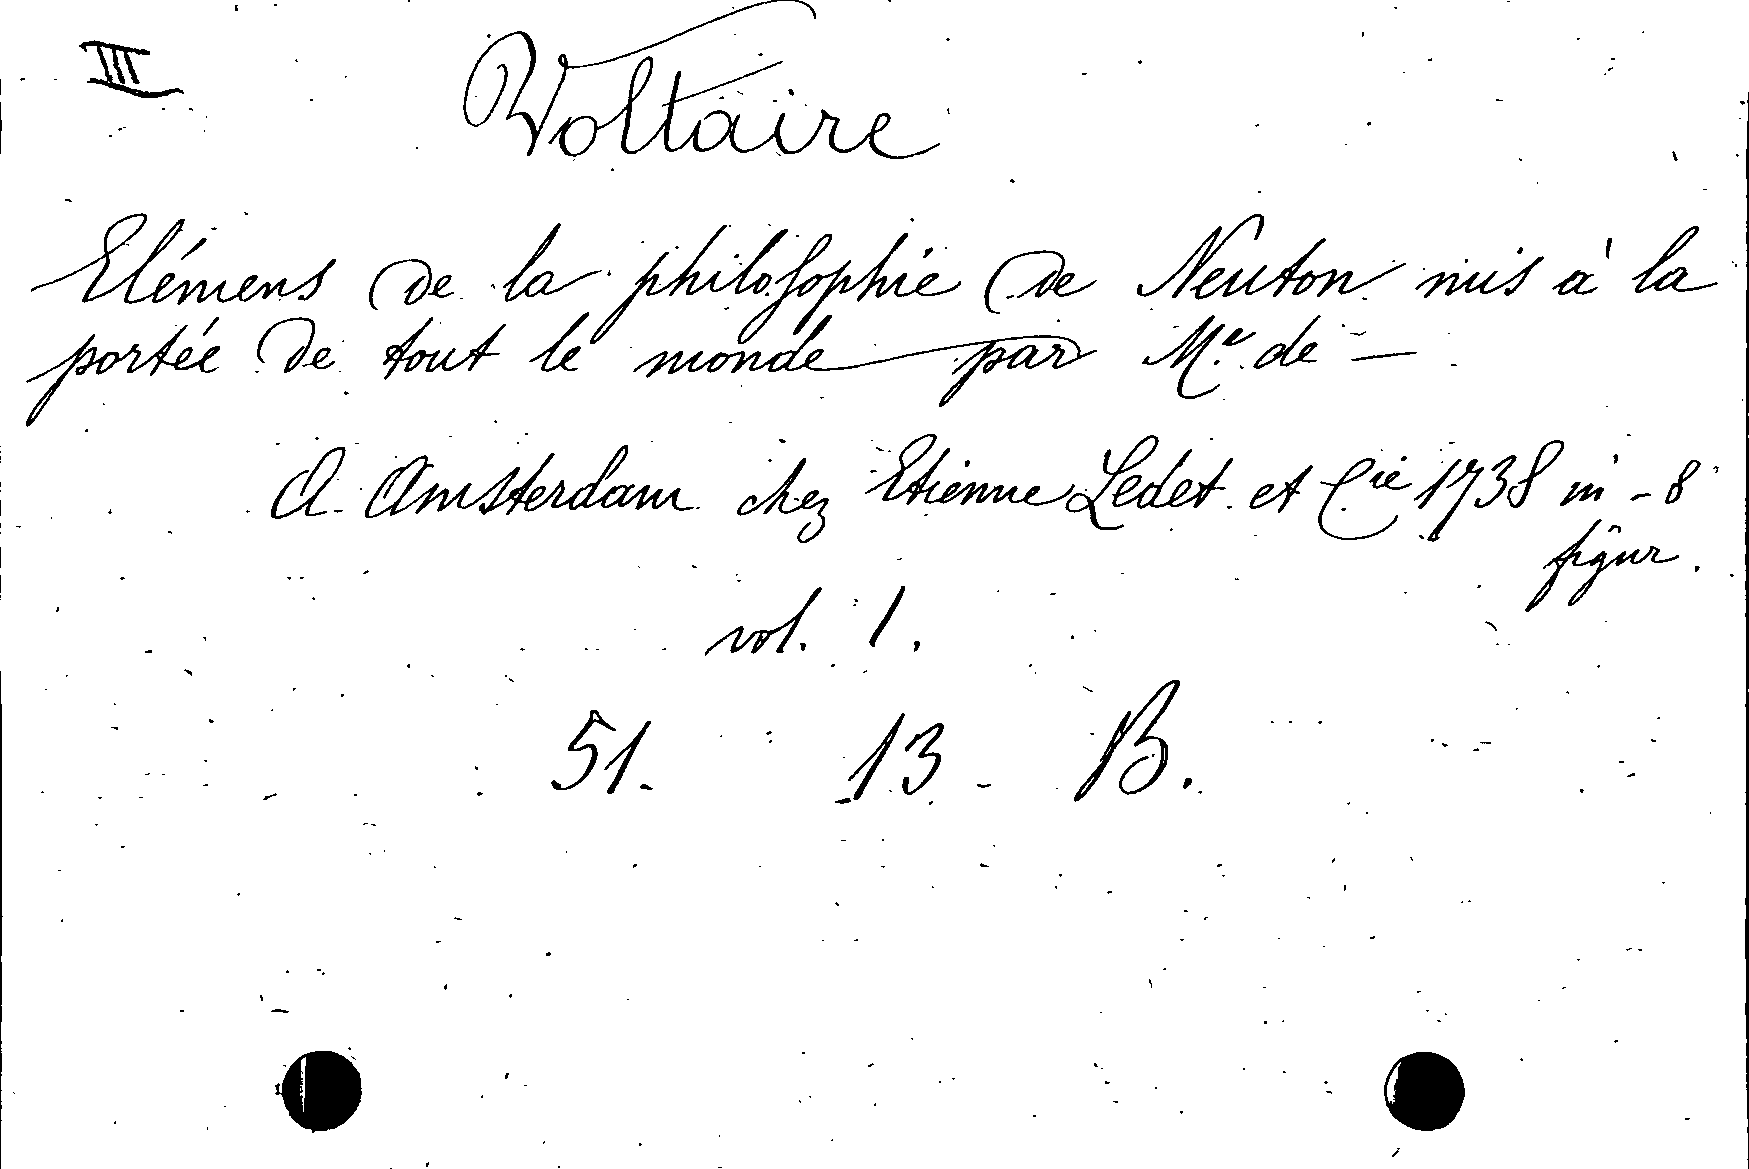 III
Voltaire
Elémens de la philosophie de Neuton mis à la
portée de tout le monde par Mr. de —
A Amsterdam chez Etienne Ledet et Cie 1738 in-8
figur.
vol. 1.
51. 13 B.